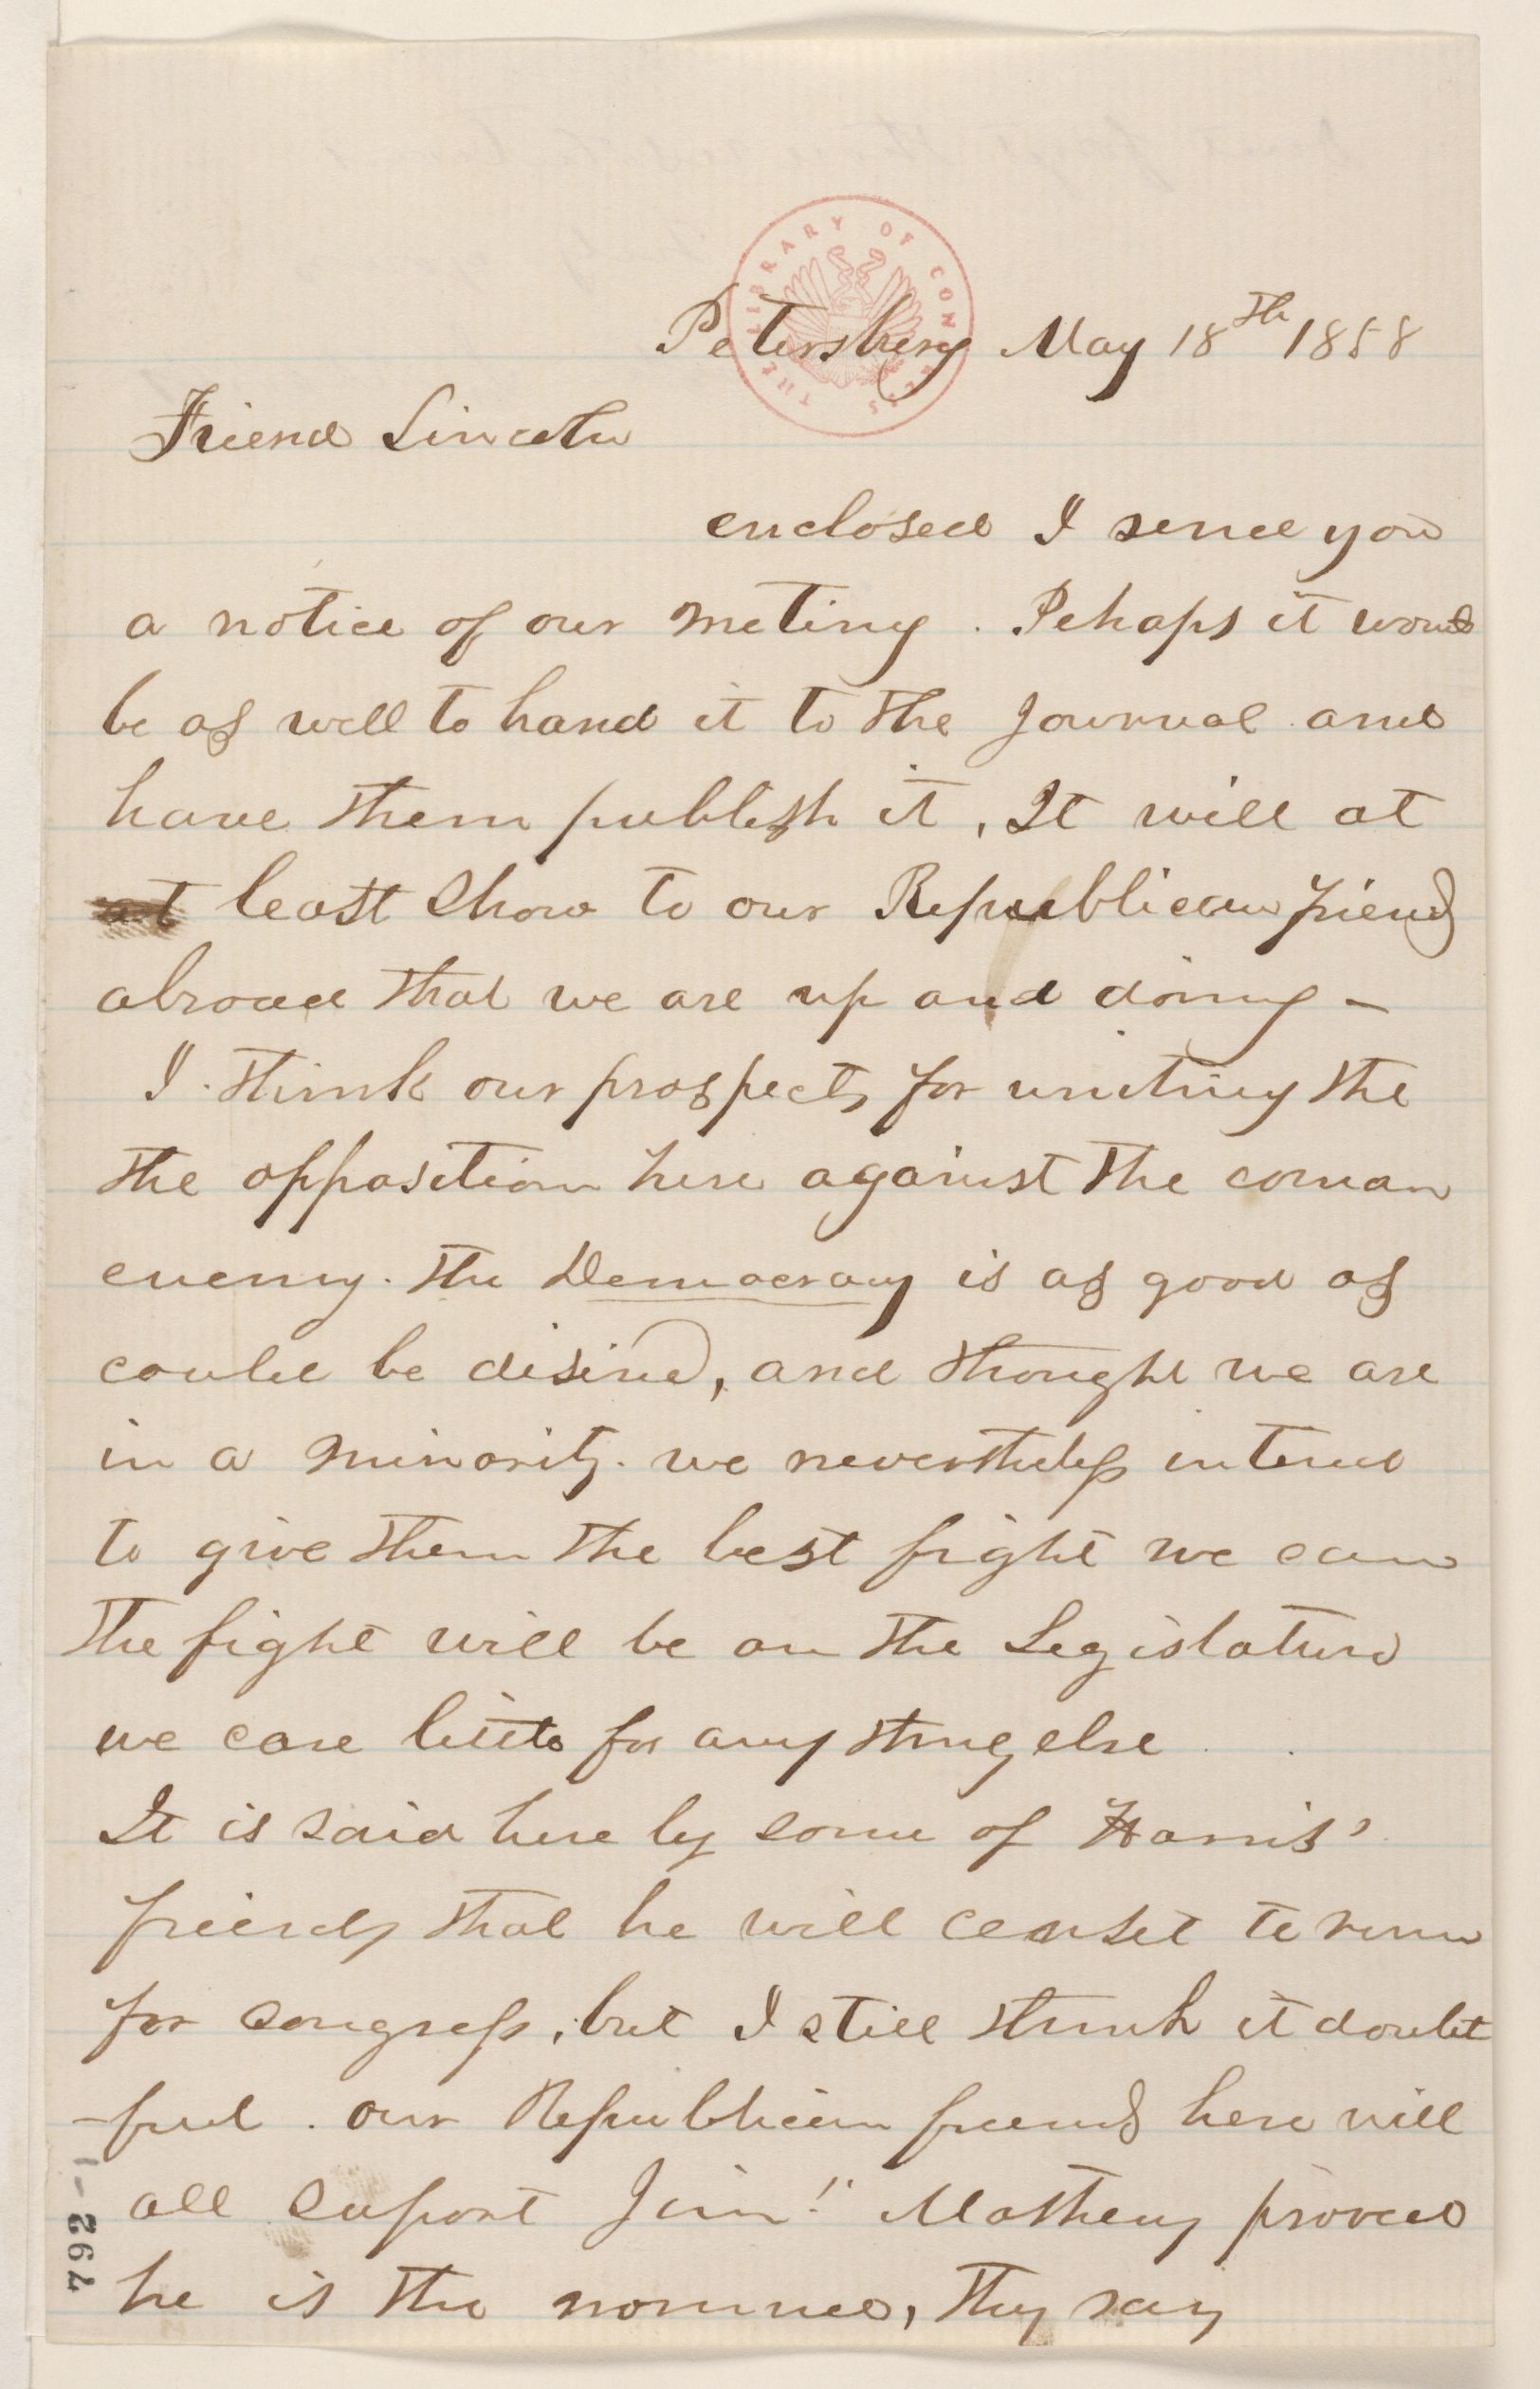 Petersburg May 18th 1858
Friend Lincoln
enclosed I send you
a notice of our meting. Pehaps it would
be as well to hand it to the Journal and
have them publish it, It will at
at least show to our Republican friends
abroad that we are up and doing —
I think our prospects for uniting the
the opposition here against the coman
enemy. the Democracy is as good as
could be disired, and thought we are
in a minority. we nevertheless intend
to give them the best fight we can
The fight will be on the Legislature
we care little for any thing else
It is said here by some of Harris'
friends that he will conset to run
for congress, but I still think it doubt
-ful. our Republican friends here will
all suport Jim" Matheny proved
he is the nominee, they say
THE LIBRARY OF CONGRESS
1-264